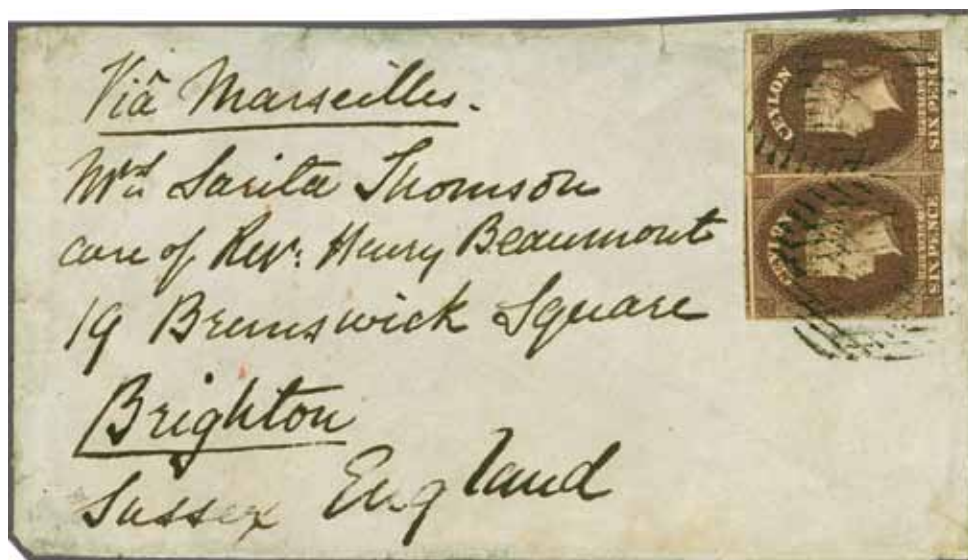 Viâ Marseilles.
Mrs Sarita Thomson
care of Revd: Henry Beaumont
19 Brunswick Square
Brighton
Sussex England
CEYLON
POSTAGE
SIX PENCE
CEYLON
POSTAGE
SIX PENCE